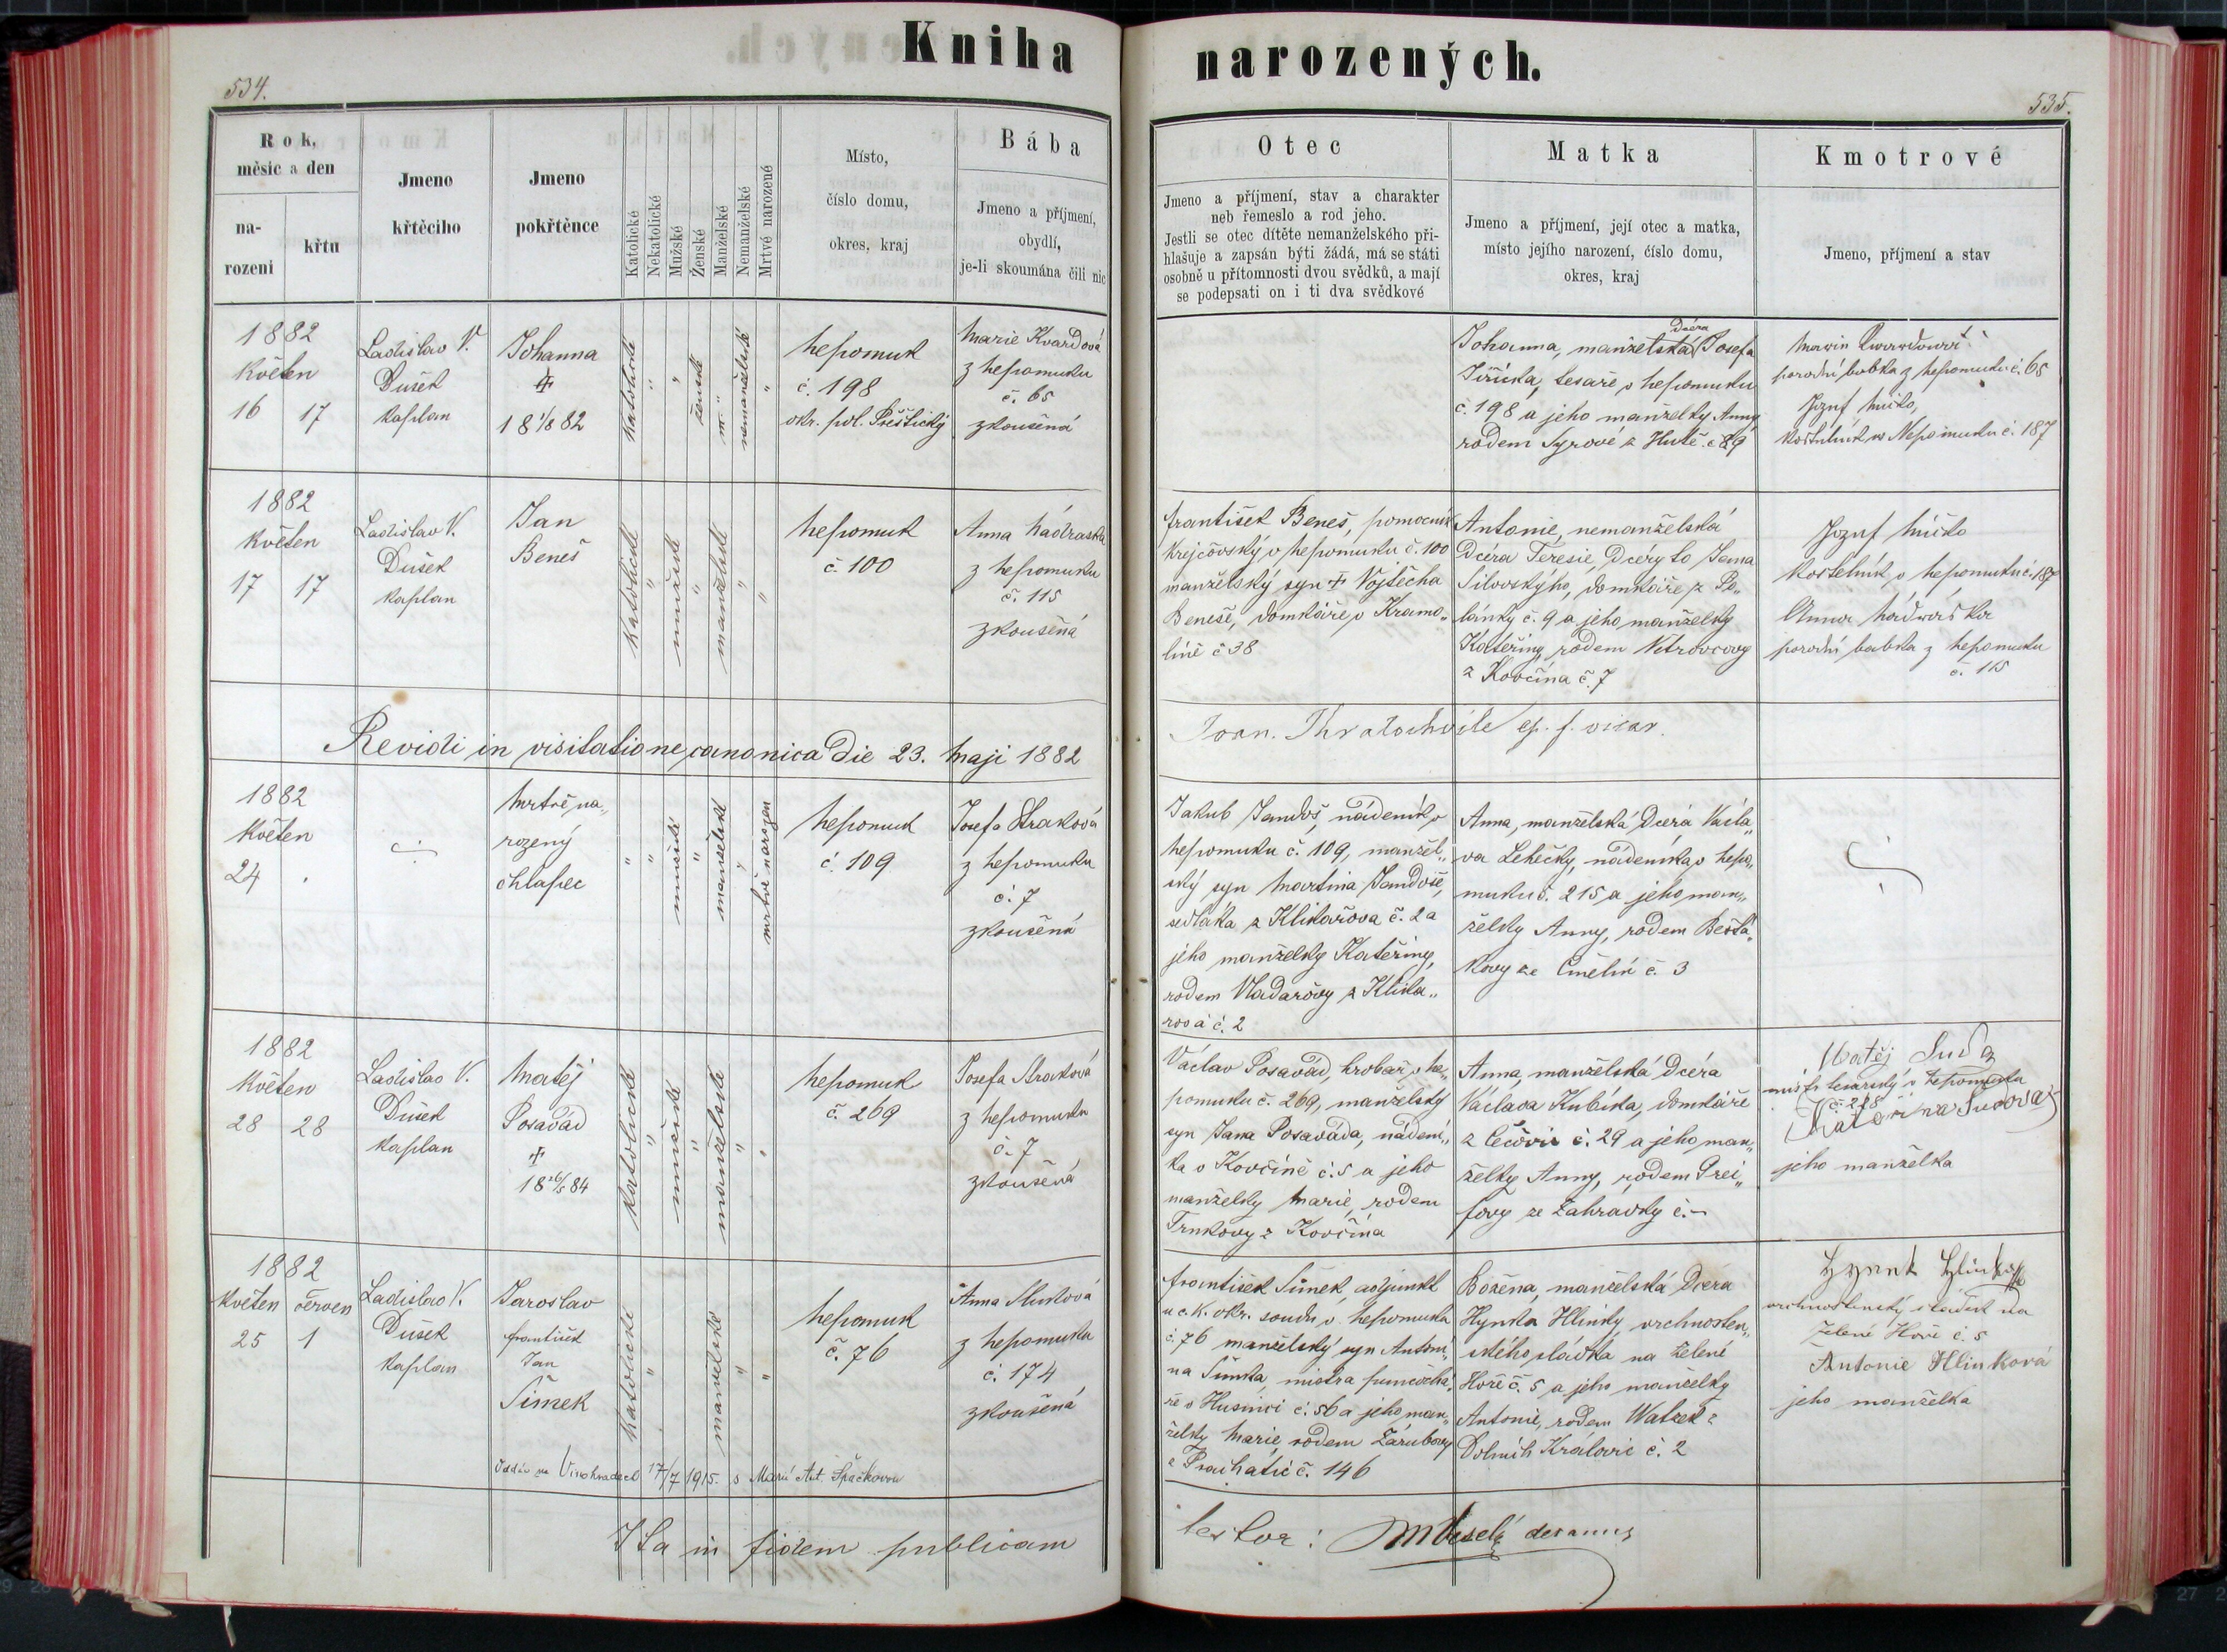 Kniha
narozených.
534.
535.
Rok,
měsíc a den
na-
rozeni
křtu
Jmeno
křtěcího
Jmeno
pokřtěnce
Katolické
Nekatolické
Mužské
Ženské
Manželské
Nemanželské
Mrtvé narozené
Místo,
číslo domu,
okres, kraj
Bába
Jmeno a příjmení,
obydlí,
je-li skoumána čili nic
Otec
Jmeno a příjmení, stav a charakter
neb řemeslo a rod jeho.
Jestli se otec dítěte nemanželského při-
hlašuje a zapsán býti žádá, má se státi
osobně u přítomnosti dvou svědků, a mají
se podepsati on i ti dva svědkové
Matka
Jmeno a příjmení, její otec a matka,
místo jejího narození, číslo domu,
okres, kraj
Kmotrové
Jmeno, příjmení a stav
1882
Květen
16 17
Ladislav V.
Dušek
kaplan
Johanna
18 1/8 82
katolické
"
"
ženské
"
nemanželské
"
Nepomuk
č. 198
okr. pol. Přeštický
Marie Kvardová
z Nepomuku
č. 65
zkoušená
Johanna, manželská dcera Josefa
tesaře v Nepomuku
č. 198 a jeho manželky Anny
rodem Syrové z Hutě č. 89
porodní babka z Nepomuku č. 65
Jozef
kostelník v Nepomuku č. 187
1882
Květen
17 17
Ladislav V.
Dušek
kaplan
Jan
Beneš
katolické
"
mužské
"
manželské
"
"
Nepomuk
č. 100
Anna
z Nepomuku
č. 115
zkoušená
František Beneš, pomocník
krejčovský v Nepomuku č. 100
manželský syn † Vojtěcha
Beneše, domkáře v Kramo„
líně č 38
Antonie, nemanželská
dcera Teresie, dcery to Jana
domkáře z
č. 9 a jeho manželky
Kateřiny, rodem
z Kovčína č. 7
Jozef
kostelník v Nepomuku č. 187
Anna
porodní babka z Nepomuku
č. 115
Revidi in visitatione canonica die 23. Maji 1882
Joan. ep. f. vicar.
1882
Květen
24
Mrtvě na„
rozený
chlapec
"
"
mužské
"
manželské
"
mrtvě narozen
Nepomuk
č. 109
Josefa Straková
z Nepomuku
č. 7
zkoušená
Jakub Jandoš, nádeník v
Nepomuku č. 109, manžel„
ský syn Martina Jandoše,
sedláka z Klikařova č. 2 a
jeho manželky Kateřiny,
rodem z Klika„
řova č. 2
Anna, manželská dcera Václa„
va Lehečky, nádeníka v Nepo„
muku č. 215 a jeho man„
želky Anny, rodem
kovy ze č. 3
1882
Květen
28 28
Ladislav V.
Dušek
kaplan
Matěj
Posavád
†
18 26/5 84
katolické
"
mužské
"
manželské
"
"
Nepomuk
č. 269
Josefa Straková
z Nepomuku
č. 7
zkoušená
Václav Posavád, hrobař v Ne„
pomuku č. 269, manželský
syn Jana Posaváda, nádení„
ka v Kovčíně č. 5 a jeho
manželky Marie, rodem
Trnkovy z Kovčína
Anna, manželská dcera
Václava Kubíka, domkáře
z Čečovic č. 29 a jeho man„
želky Anny, rodem
ze Zahrádky č. -
Matěj Suda
mistr tesařský v Nepomuku
č. 218
Kateřina Sudová
jeho manželka
1882
Květen červen
25 1
Ladislav V.
Dušek
kaplan
Jaroslav
František
Jan
Šimek
katolické
"
manželské
"
"
Nepomuk
č. 76
Anna
z Nepomuku
č. 174
zkoušená
František Šimek, adjunkt
u c. k. okr. soudu v Nepomuku
č. 76 manželský syn Antoní„
na Šimka mistra punčochá„
ře v Husinci č. 56 a jeho man„
želky Marie, rodem Zárubovy
z Prachatic č. 146
Božena, manželská dcera
Hynka Hlinky, vrchnosten„
ského sládka na Zelené
Hoře č. 5 a jeho manželky
Antonie, rodem Watzek z
Dolních Královic č. 2
Hynek Hlinka
vrchnostenský sládek na
Zelené Hoře č. 5
Antonie Hlinková
jeho manželka
Oddán na Vinohradech 17/7 1915. s Marií Ant. Špačkovou
Ita in fidem publicam
testor: Veselý decanus